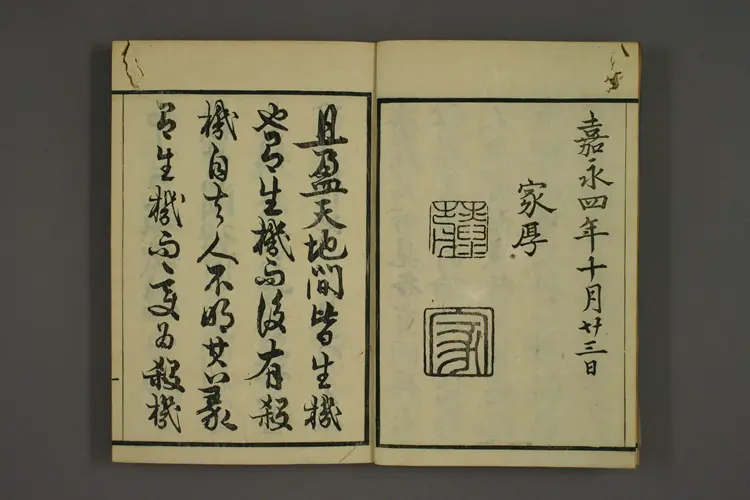 嘉永四年十月廿三日
家厚
且盈天地間皆生機
也有生機而後有殺
機自夫人不明其義
有生機而变为殺機